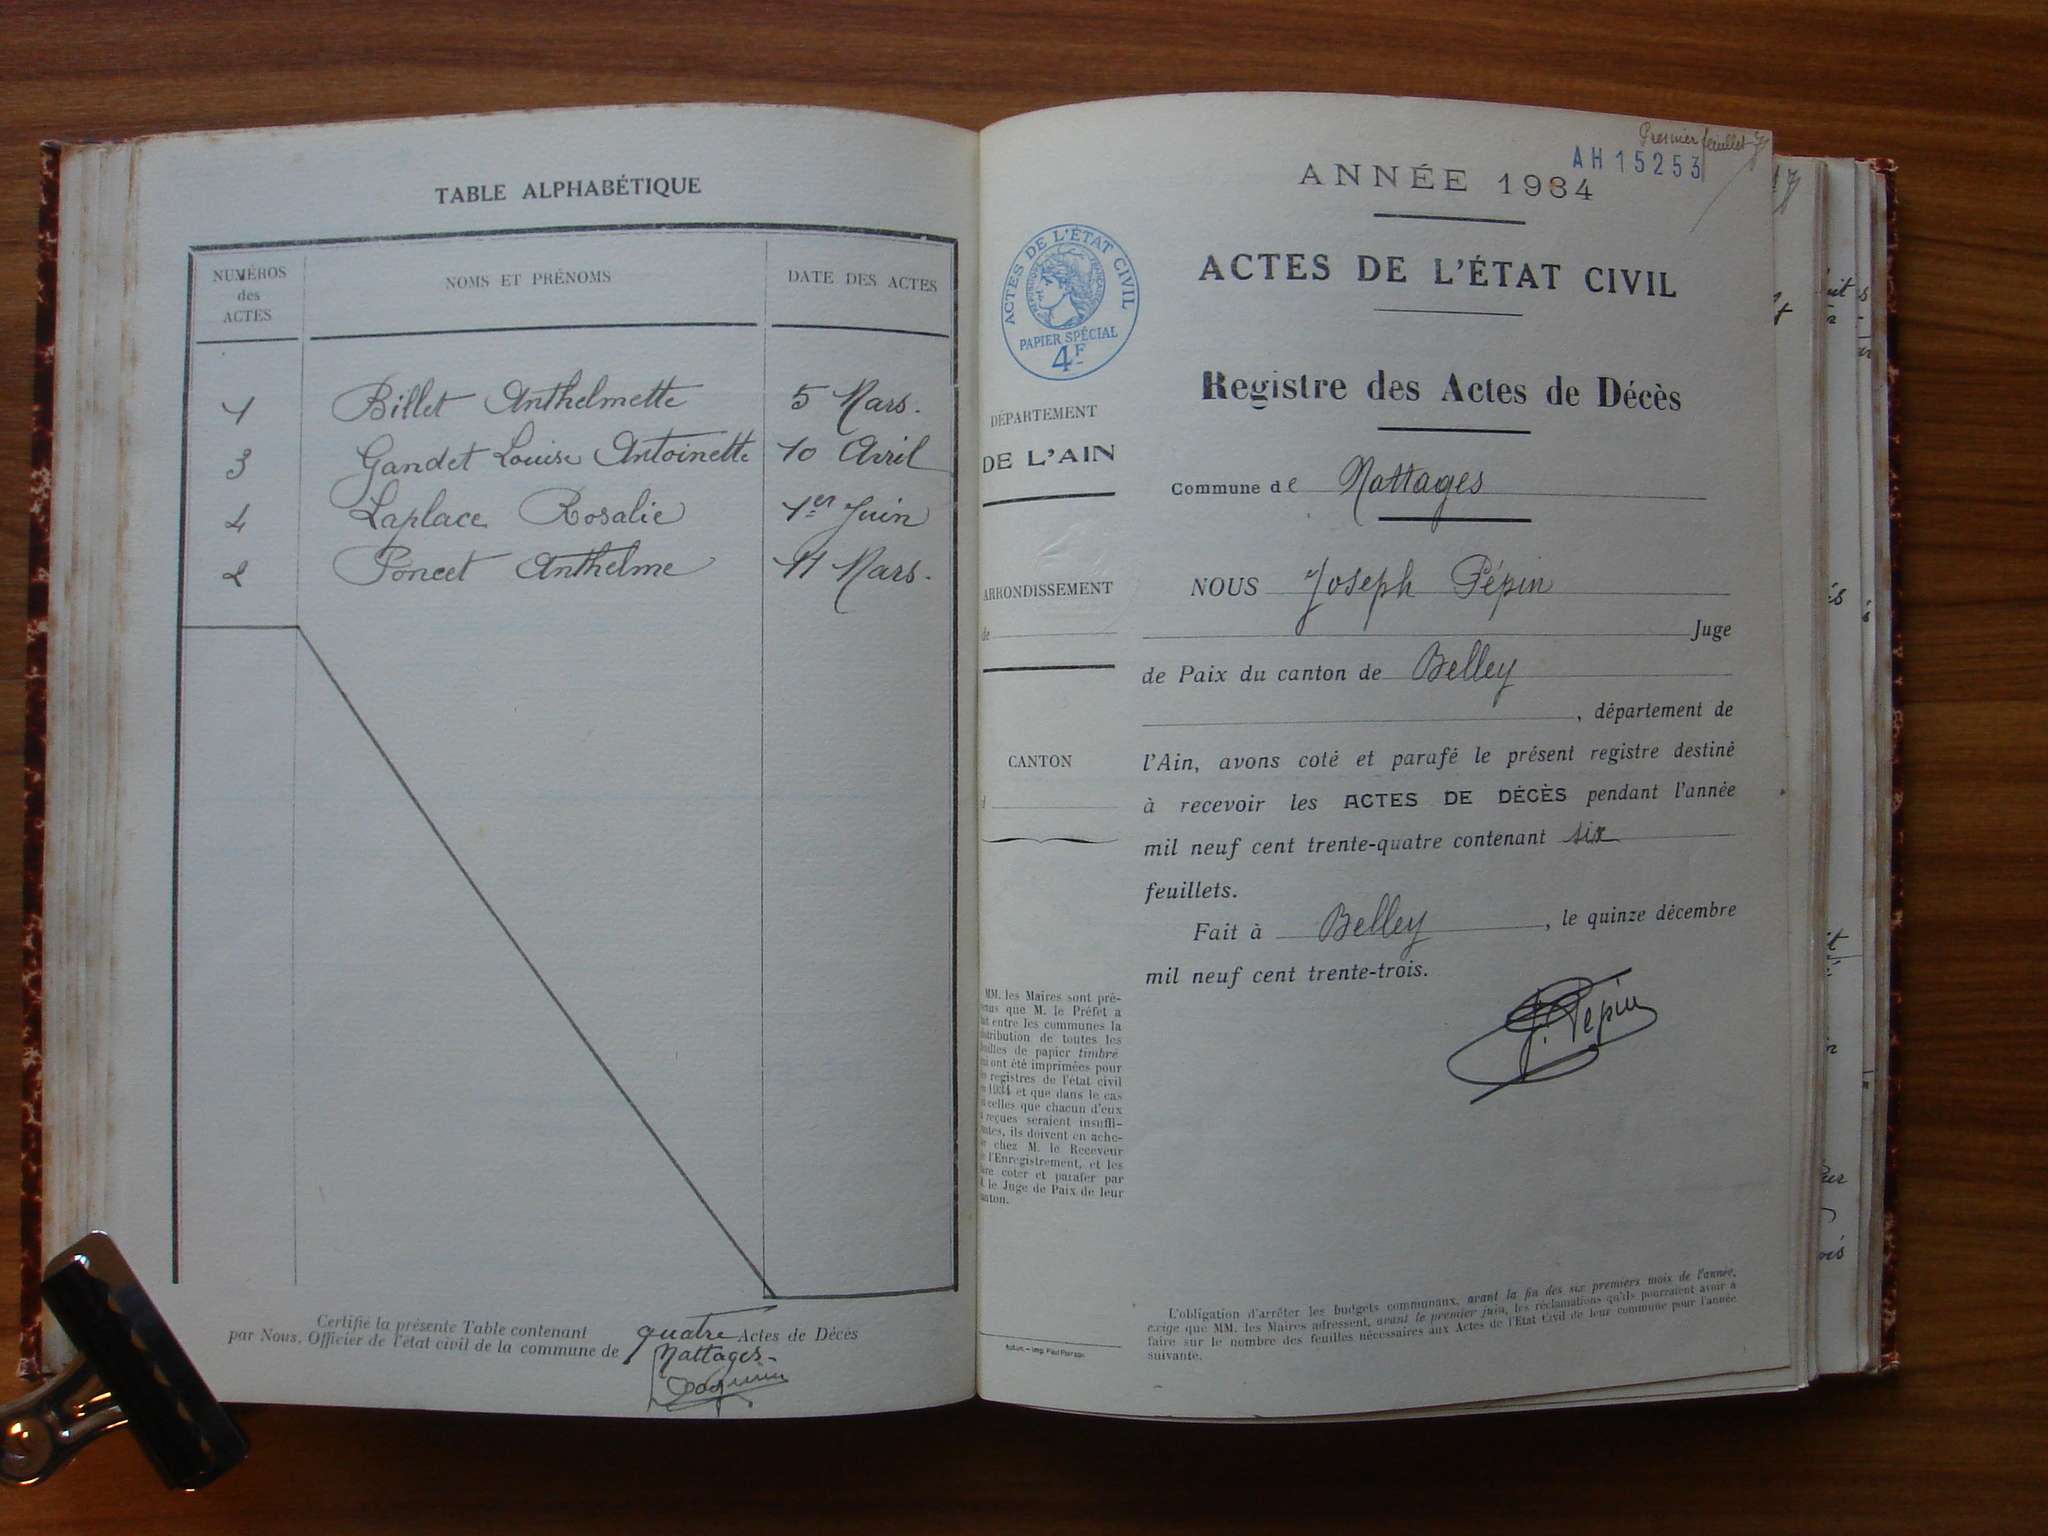 TABLE ALPHABÉTIQUE
NUMÉROS
des
ACTES
NOMS ET PRÉNOMS
DATE DES ACTES
1 Billet Anthelmette 5 Mars.
3 Gandet Louise Antoinette 10 Avril
4 Laplace Rosalie 1er Juin
2 Poncet Anthelme 11 Mars.
Certifié la présente Table contenant quatre Actes de Décès
par Nous, Officier de l'état civil de la commune de Nattages.
Premier feuillet
AH 15253
ANNÉE 1934
ACTES DE L'ÉTAT CIVIL
ACTES DE L'ÉTAT CIVIL
RÉPUBLIQUE FRANÇAISE
PAPIER SPÉCIAL
4F
Registre des Actes de Décès
DÉPARTEMENT
DE L'AIN
Commune de Nattages
ARRONDISSEMENT
de
NOUS Joseph Pépin
Juge
de Paix du canton de Belley
, département de
CANTON
l'Ain, avons coté et parafé le présent registre destiné
à recevoir les ACTES DE DÉCÈS pendant l'année
mil neuf cent trente-quatre contenant six
feuillets.
Fait à Belley, le quinze décembre
mil neuf cent trente-trois.
J. Pépin
MM. les Maires sont pré-
que M. le Préfet a
entre les communes la
de toutes les
de papier timbré
ont été imprimées pour
registres de l'état civil
1934 et que dans le cas
celles que chacun d'eux
reçues seraient insuffi-
ils doivent en ache-
chez M. le Receveur
l'Enregistrement, et les
coter et parafer par
le Juge de Paix de leur
L'obligation d'arrêter les budgets communaux, avant la fin des six premiers mois de l'année,
exige que MM. les Maires adressent, avant le premier juin, les réclamations qu'ils pourraient avoir à
faire sur le nombre des feuilles nécessaires aux Actes de l'Etat Civil de leur commune pour l'année
suivante.